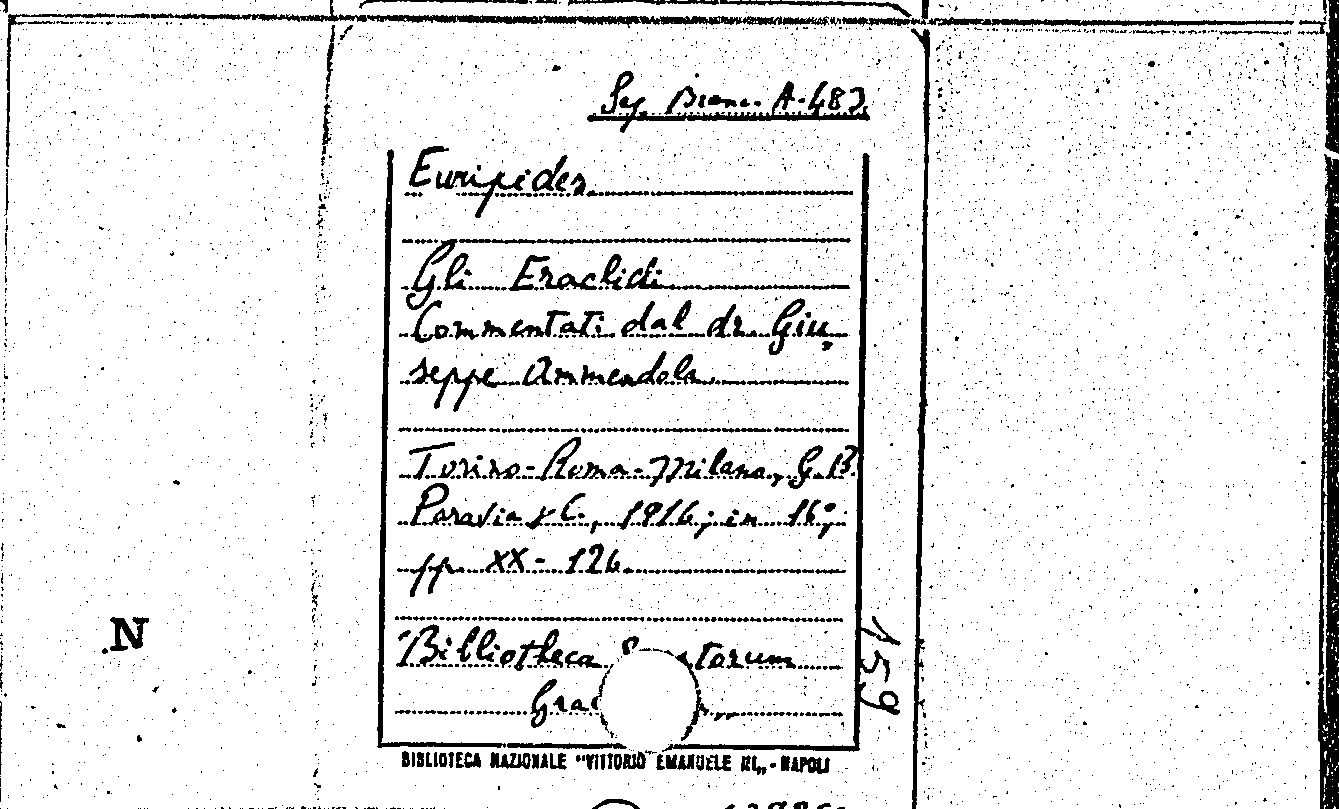 Sez. Branc. A-483.
Euripides.
Gli Eraclidi
Commentati dal dr. Giu-
seppe Ammendola.
Torino-Roma-Milano, G.B.
Paravia & C., 1916; in 16°;
pp. XX-126.
Bibliotheca
159
N
BIBLIOTECA NAZIONALE "VITTORIO EMANUELE III„ - NAPOLI